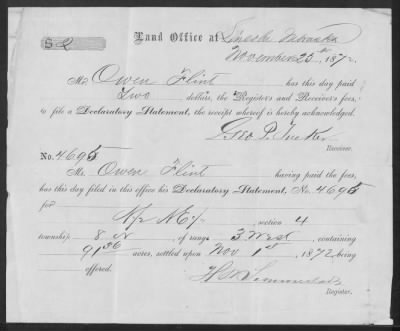 $2 Land Office at Lincoln Nebraska
November 25th 1872
Mr. Owen Flint has this day paid
Two dollars, the Register's and Receiver's fees,
to file a Declaratory Statement, the receipt whereof is hereby acknowledged.
Geo P. Tucker
Receiver.
No. 4695
Mr. Owen Flint having paid the fees,
has this day filed in this office his Declaratory Statement, No. 4695
for
N/2 NE/4 , section 4
township 8 N of range 3 West , containing
91 36 acres, settled upon Nov 1st 1872 being
offered.
Register.